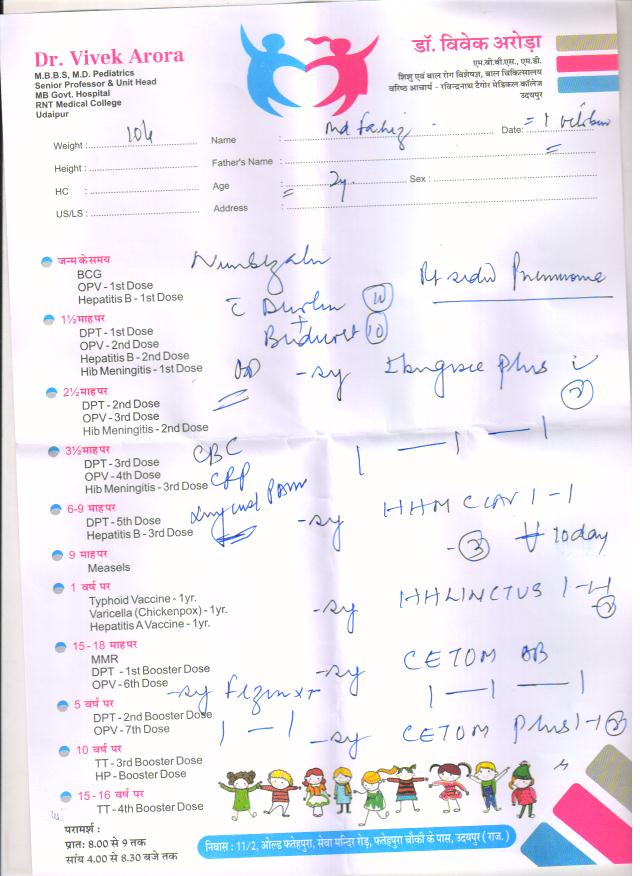 Dr. Vivek Arora
M.B.B.S, M.D. Pediatrics
Senior Professor & Unit Head
MB Govt. Hospital
RNT Medical College
Udaipur
डॉ. विवेक अरोड़ा
एम.बी.बी.एस., एम.डी.
शिशु एवं बाल रोग विशेषज्ञ, बाल चिकित्सालय
वरिष्ठ आचार्य - रविन्द्रनाथ टैगोर मेडिकल कॉलेज
उदयपुर
Weight :
Name : Md Fahiz Date:
Height :
Father's Name :
HC :
Age : 2y. Sex :
US/LS :
Address :
जन्म के समय
BCG
OPV - 1st Dose
Hepatitis B - 1st Dose
Pneumonia
1½ माह पर
DPT - 1st Dose
OPV - 2nd Dose
Hepatitis B - 2nd Dose
Hib Meningitis - 1st Dose
- sy Plus
2½ माह पर
DPT - 2nd Dose
OPV - 3rd Dose
Hib Meningitis - 2nd Dose
3½ माह पर
DPT - 3rd Dose
OPV - 4th Dose
Hib Meningitis - 3rd Dose
CBC
CRP
1 — 1 — 1
6-9 माह पर
DPT - 5th Dose
Hepatitis B - 3rd Dose
- sy HHM CLAV 1 - 1
- 3 Today
9 माह पर
Measels
1 वर्ष पर
Typhoid Vaccine - 1yr.
Varicella (Chickenpox) - 1yr.
Hepatitis A Vaccine - 1yr.
- sy HHLINCTUS
15-18 माह पर
MMR
DPT - 1st Booster Dose
OPV - 6th Dose
- sy CETOM
- sy
1 — 1 — 1
5 वर्ष पर
DPT - 2nd Booster Dose
OPV - 7th Dose
1 - 1
- sy CETOM Plus
10 वर्ष पर
TT - 3rd Booster Dose
HP - Booster Dose
15-16 वर्ष पर
TT - 4th Booster Dose
परामर्श :
प्रात: 8.00 से 9 तक
सांय 4.00 से 8.30 बजे तक
निवास : 11/2, ओल्ड फतेहपुरा, सेवा मन्दिर रोड़, फतेहपुरा चौकी के पास, उदयपुर ( राज. )